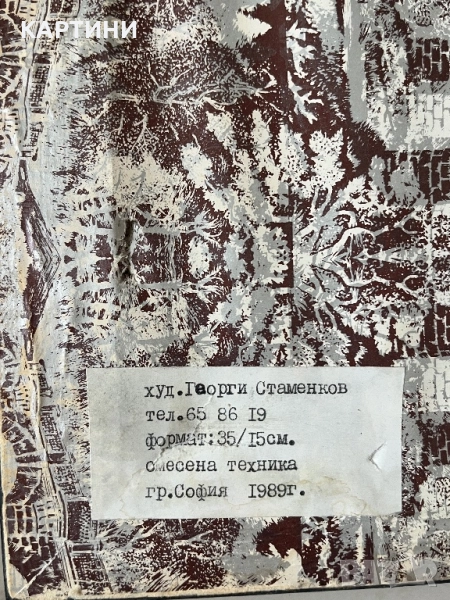 КАРТИНИ
худ.Георги Стаменков
тел.65 86 19
формат:35/15см.
смесена техника
гр.София 1989г.